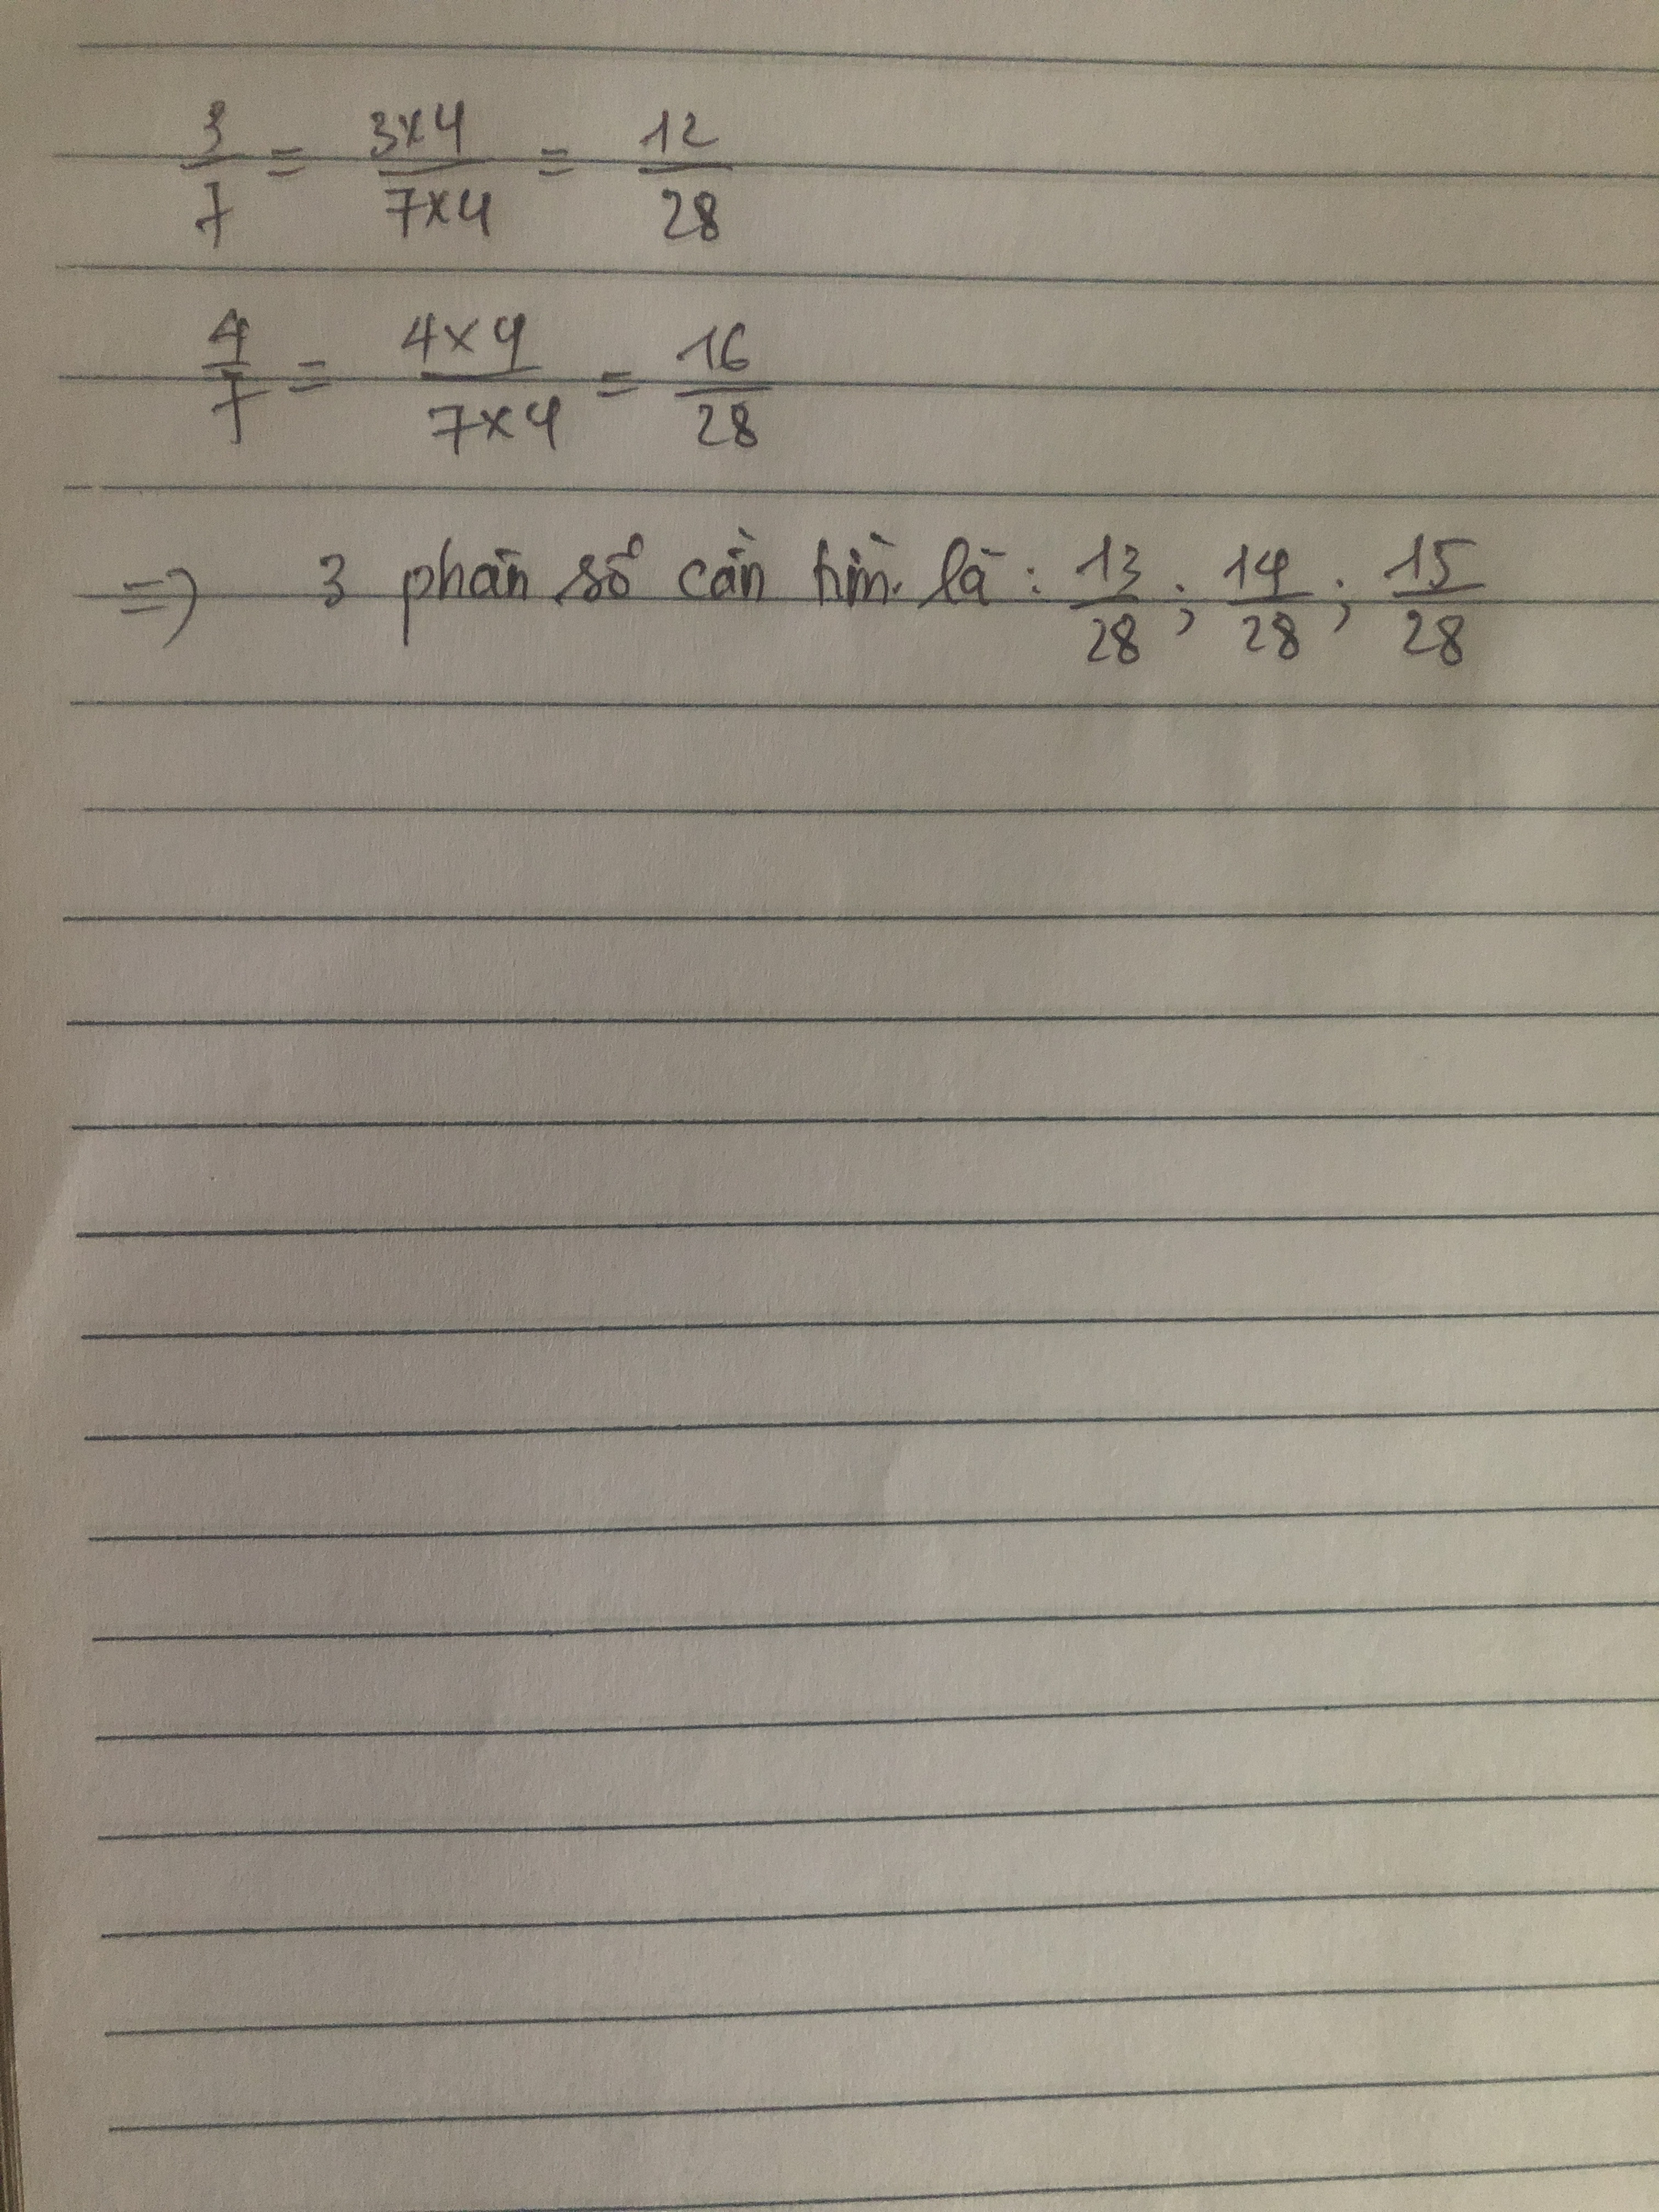 3/7 = 3x4/7x4 = 12/28
4/7 = 4x4/7x4 = 16/28
=> 3 phân số cần tìm là: 13/28; 14/28; 15/28